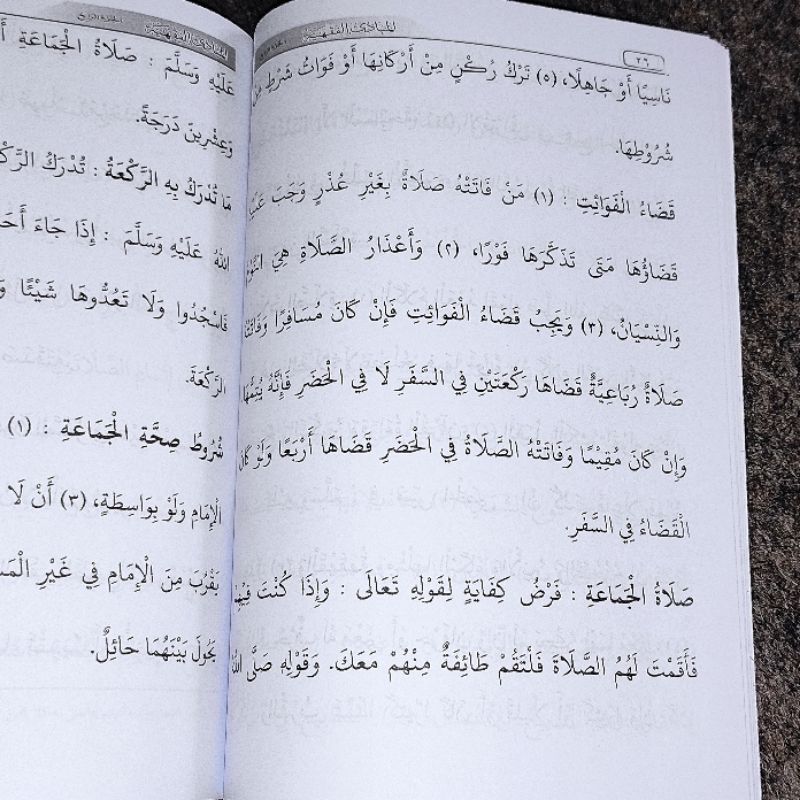 ٢٦
المبادئ الفقهية
نَاسِيًا أَوْ جَاهِلًا، (٥) تَرْكُ رُكْنٍ مِنْ أَرْكَانِهَا أَوْ فَوَاتُ شَرْطٍ مِنْ
شُرُوْطِهَا.
قَضَاءُ الْفَوَائِتِ : (١) مَنْ فَاتَتْهُ صَلَاةٌ بِغَيْرِ عُذْرٍ وَجَبَ عَلَيْهِ
قَضَاؤُهَا مَتَى تَذَكَّرَهَا فَوْرًا، (٢) وَأَعْذَارُ الصَّلَاةِ هِيَ النَّوْمُ
وَالنِّسْيَانُ، (٣) وَيَجِبُ قَضَاءُ الْفَوَائِتِ فَإِنْ كَانَ مُسَافِرًا وَفَاتَتْهُ
صَلَاةٌ رُبَاعِيَّةٌ قَضَاهَا رَكْعَتَيْنِ فِي السَّفَرِ لَا فِي الْحَضَرِ فَإِنَّهُ يُتِمُّهَا
وَإِنْ كَانَ مُقِيْمًا وَفَاتَتْهُ الصَّلَاةُ فِي الْحَضَرِ قَضَاهَا أَرْبَعًا وَلَوْ كَانَ
الْقَضَاءُ فِي السَّفَرِ.
صَلَاةُ الْجَمَاعَةِ : فَرْضُ كِفَايَةٍ لِقَوْلِهِ تَعَالَى : وَإِذَا كُنْتَ فِيْهِمْ
فَأَقَمْتَ لَهُمُ الصَّلَاةَ فَلْتَقُمْ طَائِفَةٌ مِنْهُمْ مَعَكَ. وَقَوْلِهِ صَلَّى اللهُ
المبادئ الفقهية
عَلَيْهِ وَسَلَّمَ : صَلَاةُ الْجَمَاعَةِ
وَعِشْرِيْنَ دَرَجَةً.
مَا تُدْرَكُ بِهِ الرَّكْعَةُ : تُدْرَكُ
اللهُ عَلَيْهِ وَسَلَّمَ : إِذَا جَاءَ
فَاسْجُدُوا وَلَا تَعُدُّوهَا شَيْئًا
الرَّكْعَةَ.
شُرُوْطُ صِحَّةِ الْجَمَاعَةِ : (١)
الْإِمَامِ وَلَوْ بِوَاسِطَةٍ، (٣) أَنْ لَا
يَقْرُبَ مِنَ الْإِمَامِ فِي غَيْرِ
يَحُوْلَ بَيْنَهُمَا حَائِلٌ.